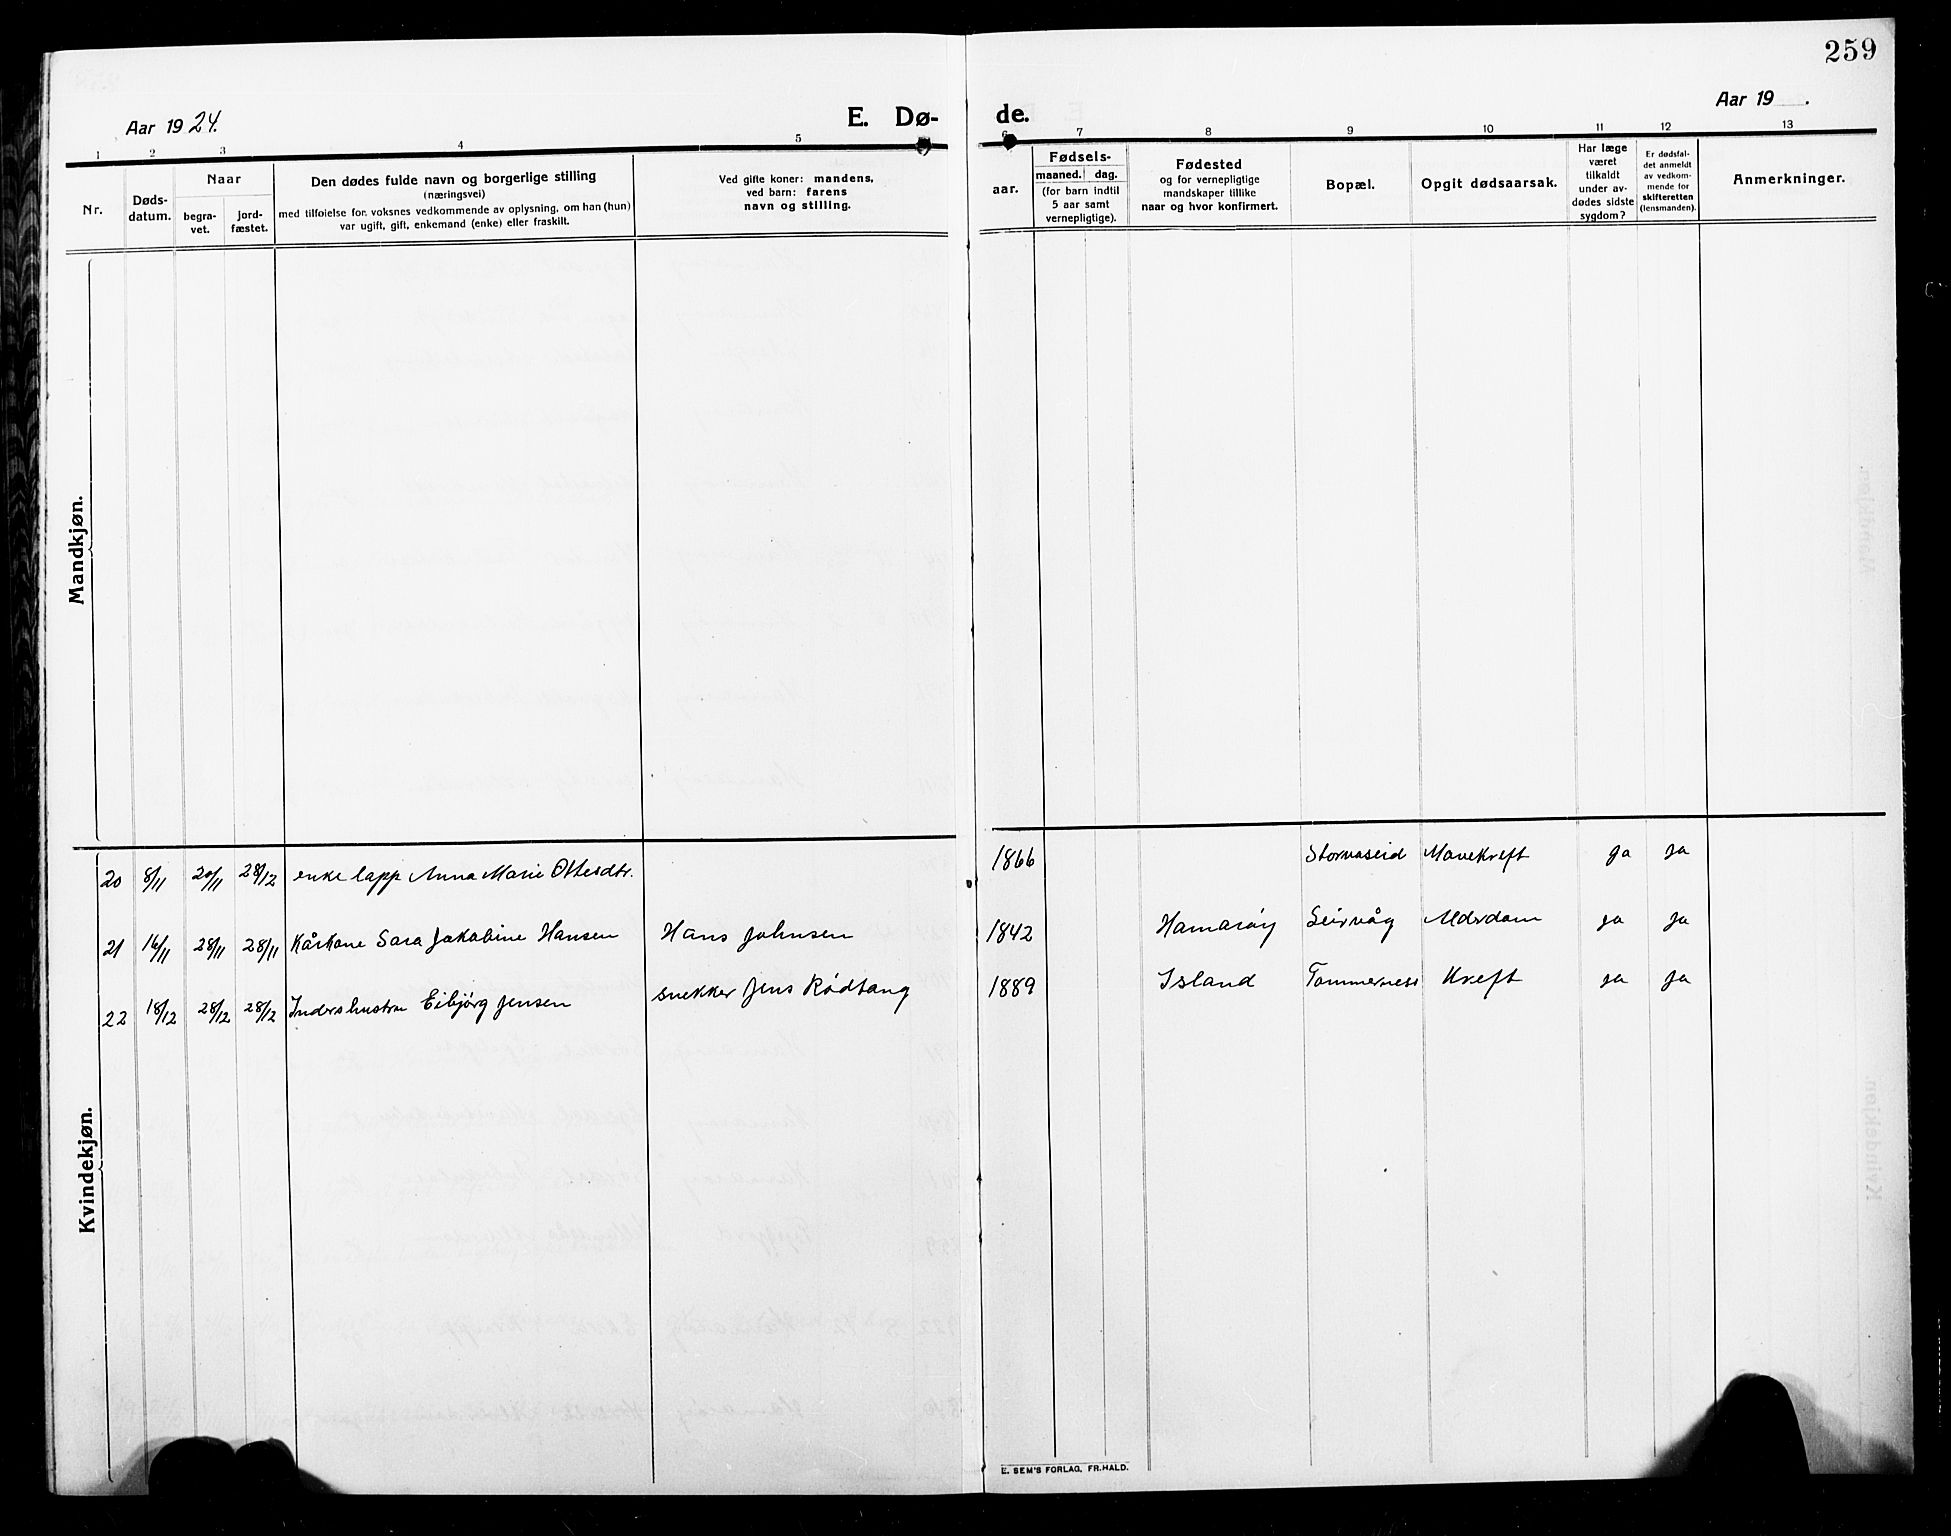 259
Aar 1924.
E. Dø-
de.
Aar 19 .
1 2 3 4 5 6 7 8 9 10 11 12 13
Nr.
Døds-
datum.
Naar
begra-
vet.
jord-
fæstet.
Den dødes fulde navn og borgerlige stilling
(næringsvei)
med tilføielse for. voksnes vedkommende av oplysning, om han (hun)
var ugift, gift, enkemand (enke) eller fraskilt.
Ved gifte koner: mandens,
ved barn: farens
navn og stilling.
aar.
Fødsels-
maaned. dag.
(for barn indtil
5 aar samt
vernepligtige).
Fødested
og for vernepligtige
mandskaper tillike
naar og hvor konfirmert.
Bopæl.
Opgit dødsaarsak.
Har læge
været
tilkaldt
under av-
dødes sidste
sygdom?
Er dødsfal-
det anmeldt
av vedkom-
mende for
skifteretten
(lensmanden).
Anmerkninger.
Mandkjøn.
Kvindekjøn.
20 8/11 20/11 28/12 enke lapp Anna Marie Ottesdtr. 1866 Storvaseid Mavekreft ja ja
21 16/11 28/11 28/11 Kårkone Sara Jakobine Hansen Hans Johnsen 1842 Hamarøy Leirvåg Alderdom ja ja
22 18/12 28/12 28/12 Indershustru Eibjørg Jensen snekker Jens Rødtang 1889 Island Tommerness Kreft ja ja
E. SEM'S FORLAG, FR.HALD.